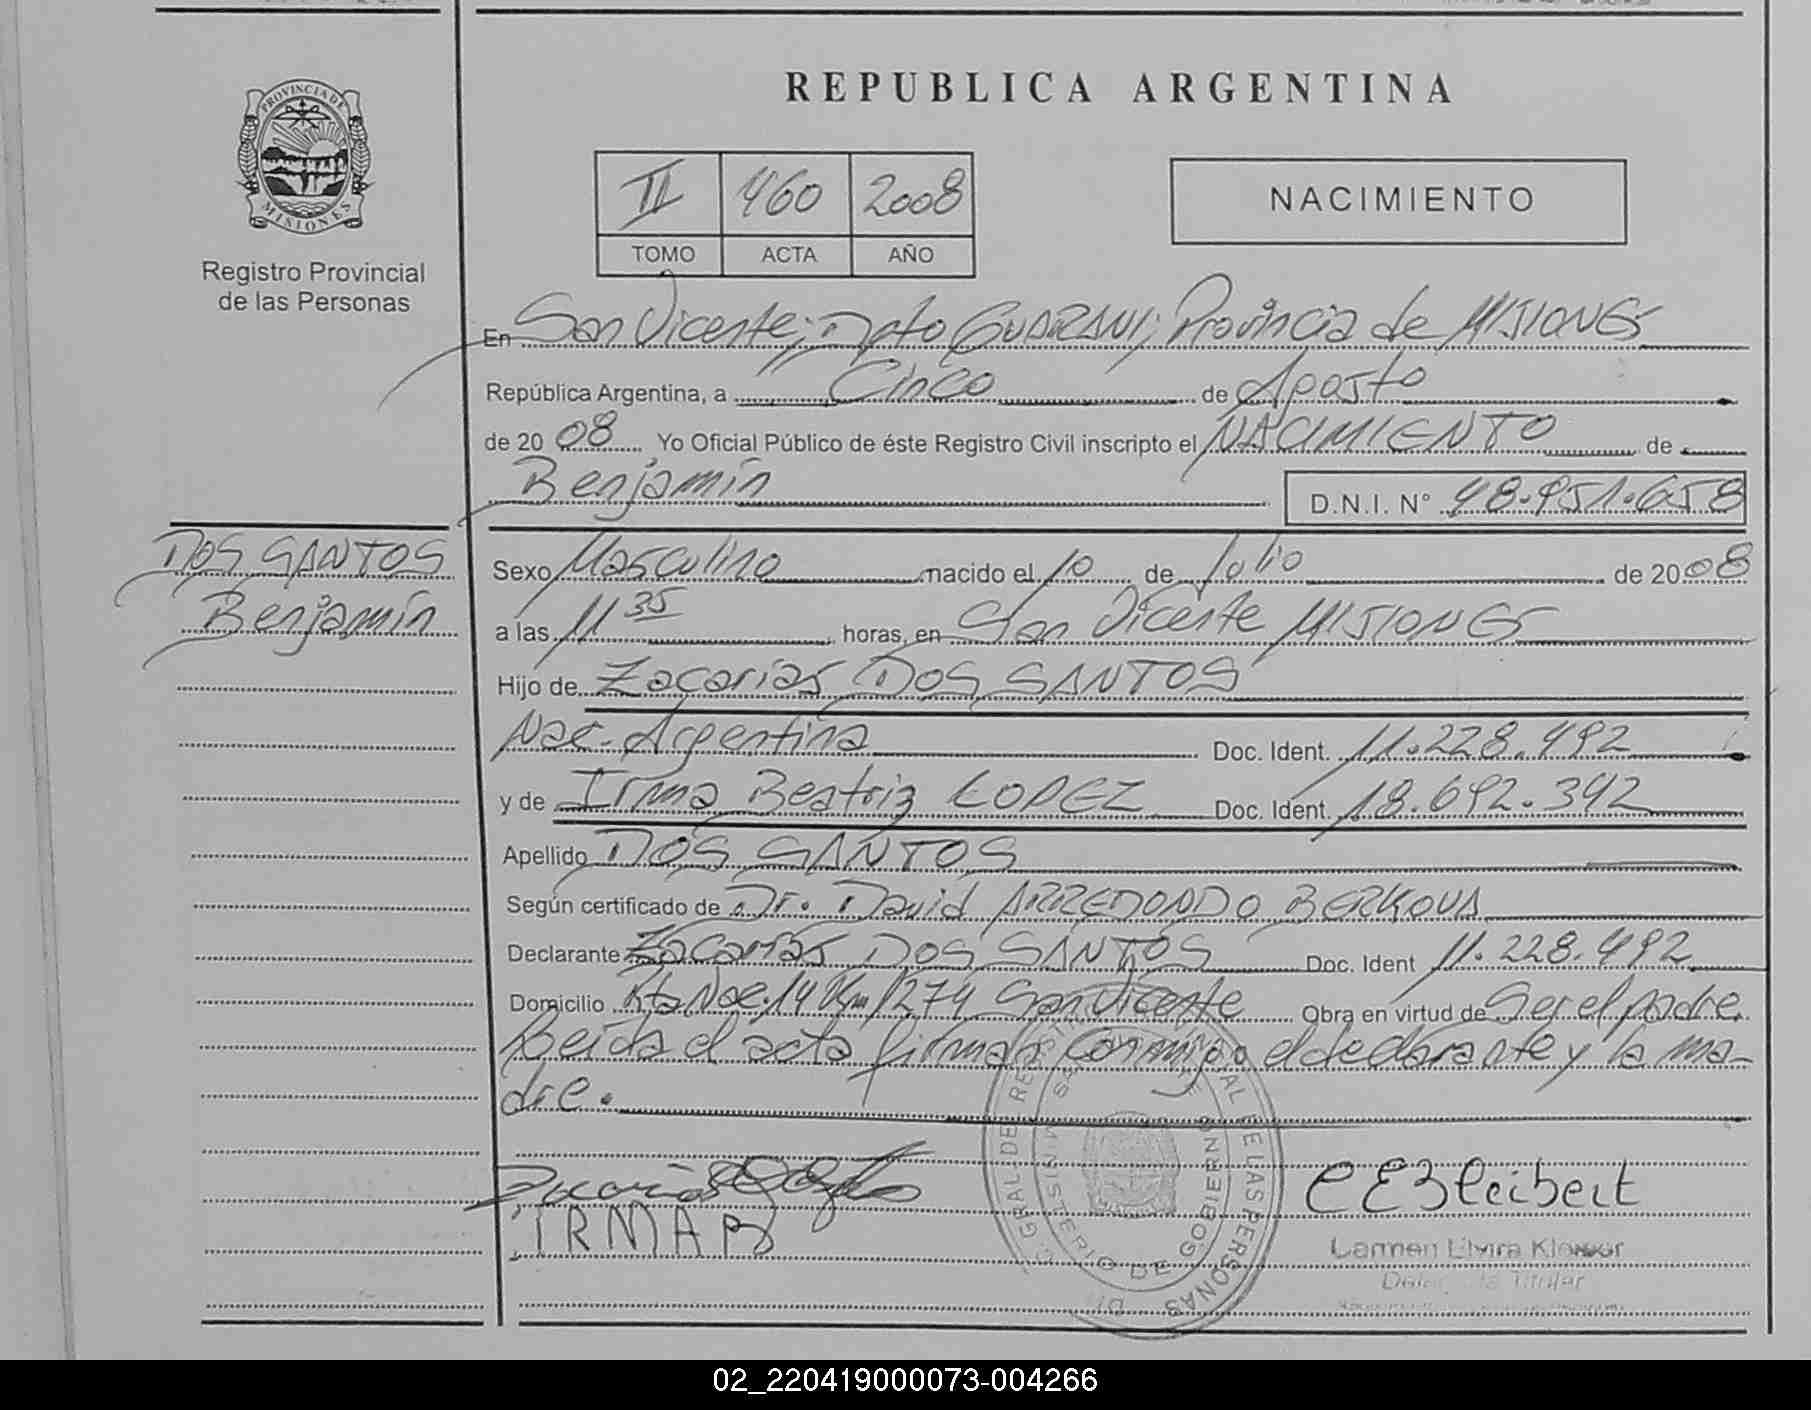 REPUBLICA ARGENTINA
PROVINCIA DE
MISIONES
Registro Provincial
de las Personas
II 460 2008
TOMO ACTA AÑO
NACIMIENTO
En San Vicente; Dpto GUARANI; Provincia de MISIONES
República Argentina, a Cinco de Agosto
de 2008 Yo Oficial Público de éste Registro Civil inscripto el NACIMIENTO de
Benjamín D.N.I. N° 48.951.658
DOS SANTOS
Benjamín
Sexo Masculino nacido el 10 de Julio de 2008
a las 11 35 horas, en San Vicente MISIONES
Hijo de Zacarias DOS SANTOS
Nac. Argentina Doc. Ident. 11.228.492
y de Irma Beatriz LOPEZ Doc. Ident. 18.692.392
Apellido DOS SANTOS
Según certificado de Dr. David ARREDONDO BERKOVA
Declarante Zacarias DOS SANTOS Doc. Ident 11.228.492
Domicilio Rta Nac. 14 Km 1274 San Vicente Obra en virtud de Ser el padre.
Leída el acta firman conmigo el declarante y la ma-
dre.
IRMA B
MINISTERIO DE GOBIERNO
Carmen Elvira
Titular
02_220419000073-004266